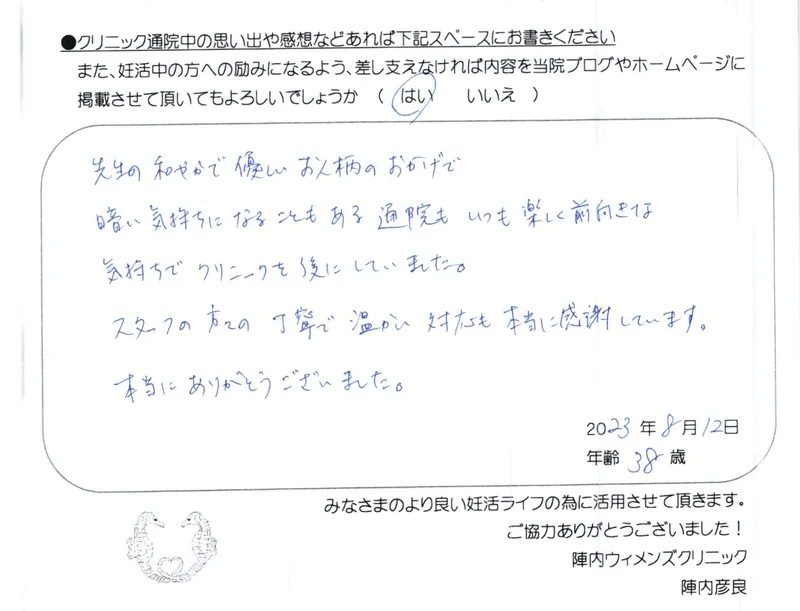 ●クリニック通院中の思い出や感想などあれば下記スペースにお書きください
また、妊活中の方への励みになるよう、差し支えなければ内容を当院ブログやホームページに
掲載させて頂いてもよろしいでしょうか （ はい　いいえ ）
先生の和やかで優しいお人柄のおかげで
暗い気持ちになることもある通院もいつも楽しく前向きな
気持ちでクリニックを後にしていました。
スタッフの方々の丁寧で温かい対応も本当に感謝しています。
本当にありがとうございました。
2023年8月12日
年齢 38歳
みなさまのより良い妊活ライフの為に活用させて頂きます。
ご協力ありがとうございました！
陣内ウィメンズクリニック
陣内彦良